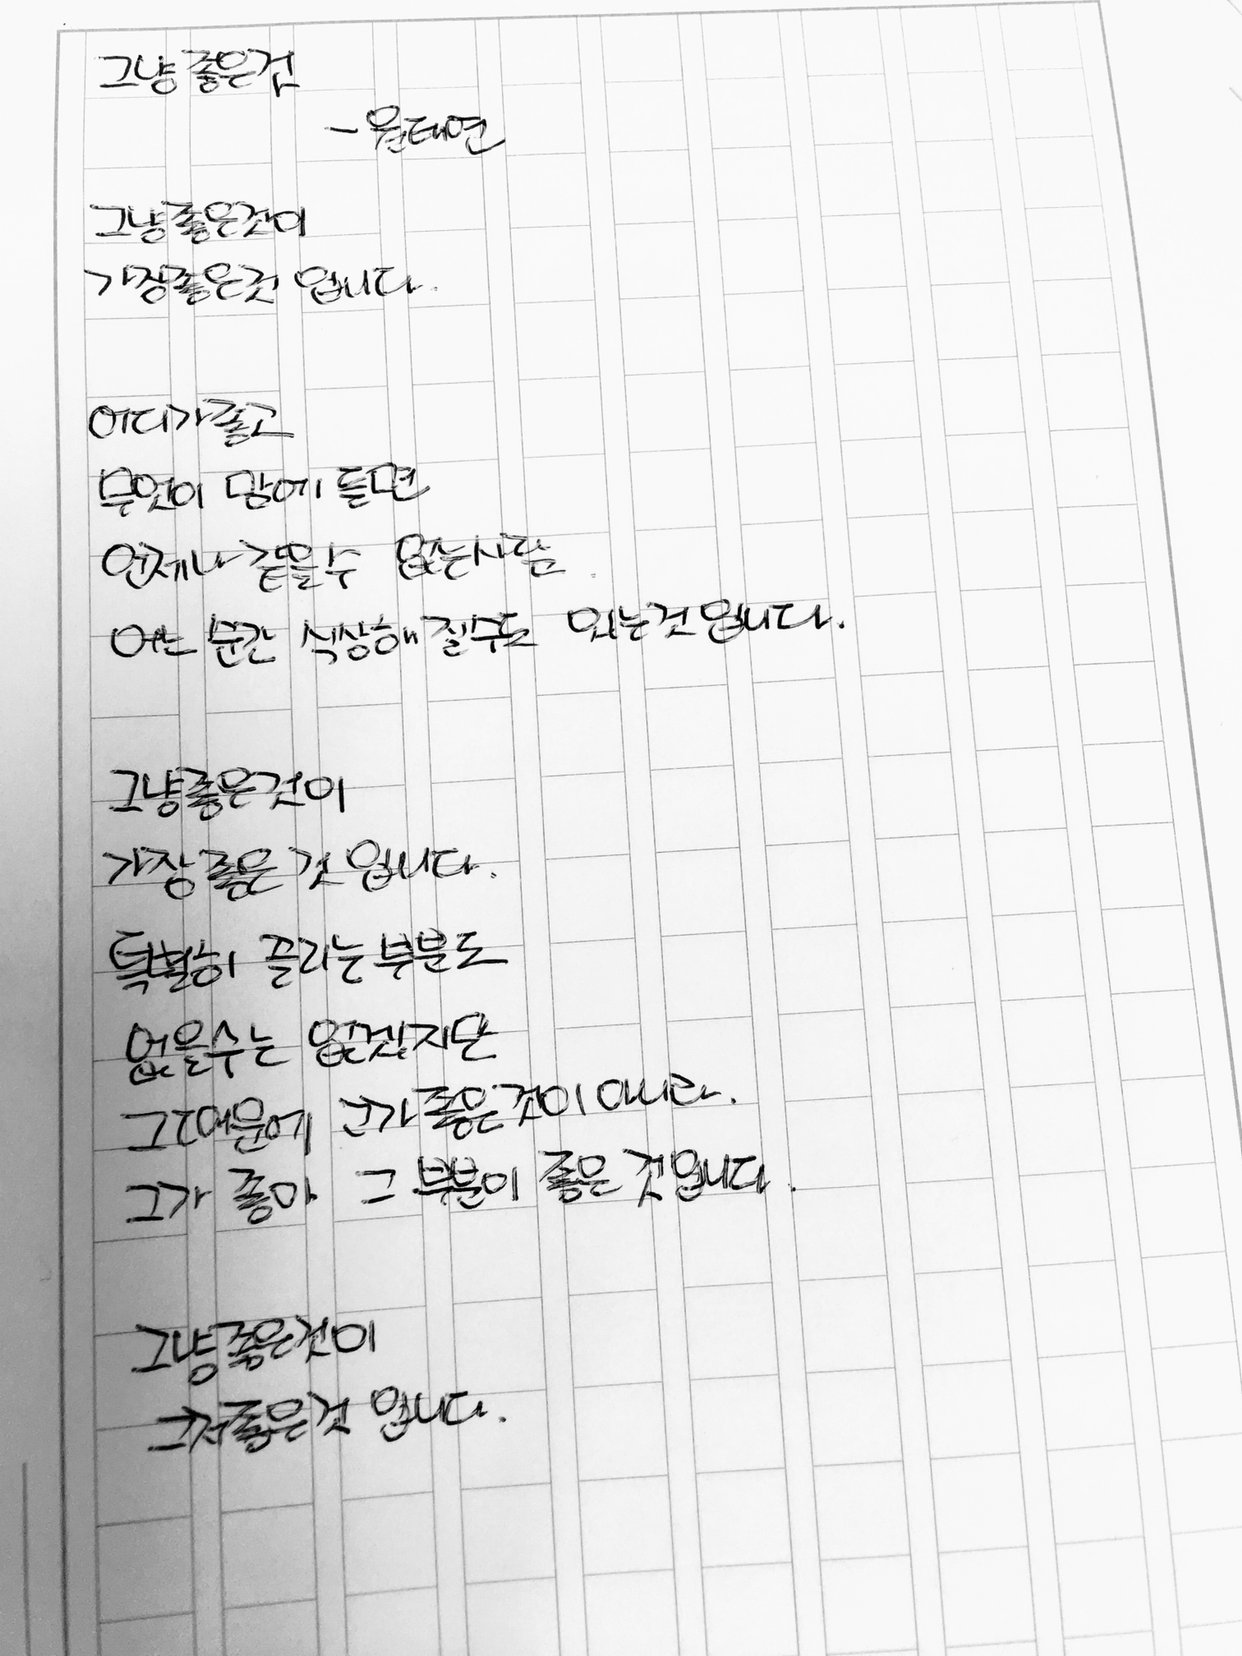 그냥 좋은 것
- 원태연
그냥 좋은것이
가장 좋은것 입니다.
어디가 좋고
무엇이 맘에 들면
언제나 같을 수 없는 사람
어느 순간 식상해 질수도 있는것 입니다.
그냥 좋은것이
가장 좋은 것 입니다.
특별히 끌리는 부분도
없을 수는 없겠지만
그 때문에 그가 좋은 것이 아니라.
그가 좋아 그 부분이 좋은 것입니다.
그냥 좋은것이
그저 좋은것 입니다.